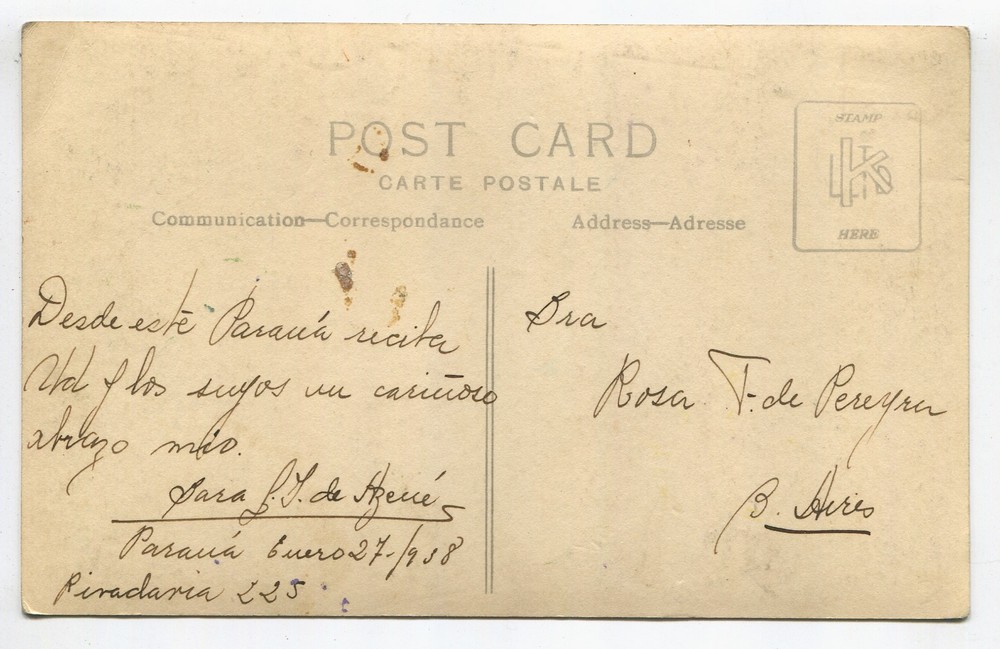 POST CARD
CARTE POSTALE
Communication—Correspondance
Address—Adresse
STAMP
HERE
Desde este Paraná reciba
Ud y los suyos un cariñoso
abrazo mío.
Sara de
Paraná Enero 27-/938
Rivadavia 225
Sra
Rosa T. de Pereyra
B. Aires